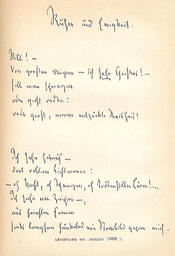 Ruhm und Ewigkeit.
Still! –
Von großen Dingen – ich sehe Großes! –
soll man schweigen
oder groß reden:
rede groß, meine entzückte Weisheit!
Ich sehe hinauf –
dort rollen Lichtmeere:
– oh Nacht, oh Schweigen, oh todtenstiller Lärm!...
Ich sehe ein Zeichen –,
aus fernsten Fernen
sinkt langsam funkelnd ein Sternbild gegen mich...